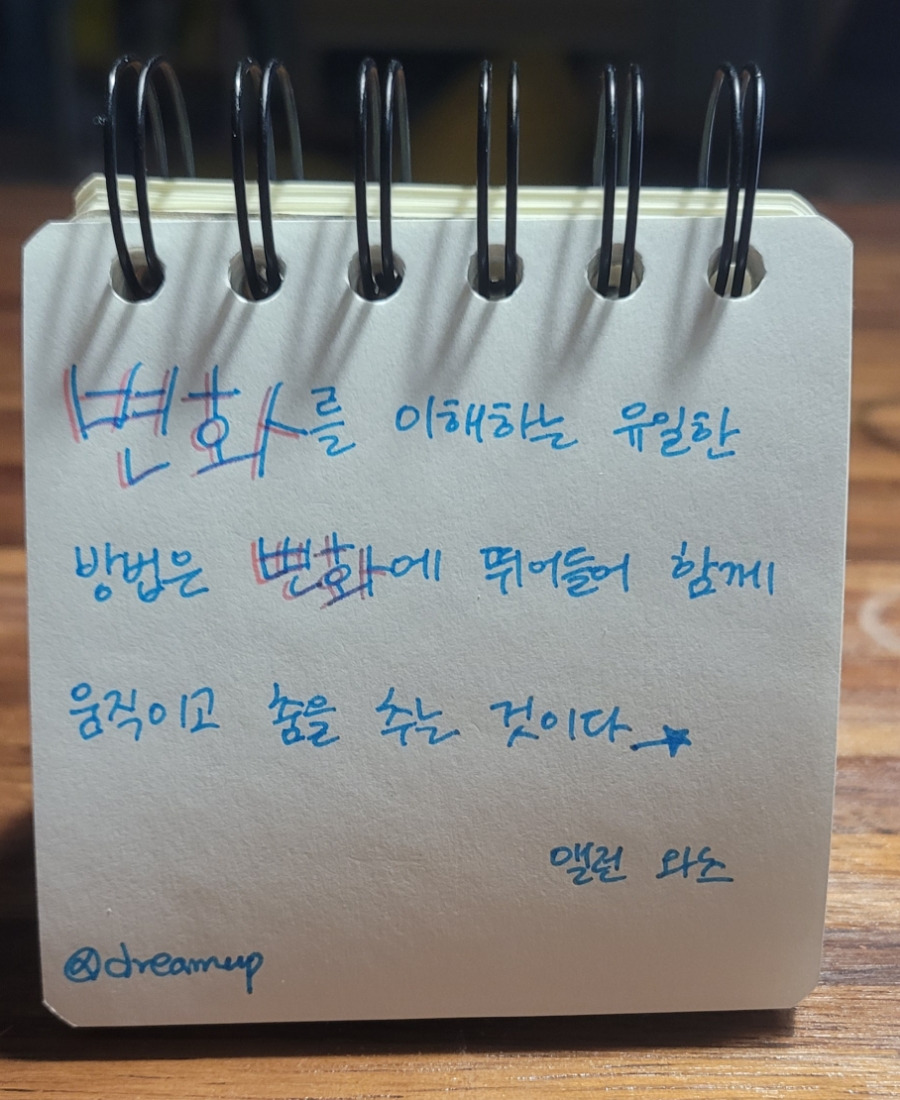 변화를 이해하는 유일한
방법은 변화에 뛰어들어 함께
움직이고 춤을 추는 것이다
앨런 와츠
@dreamup